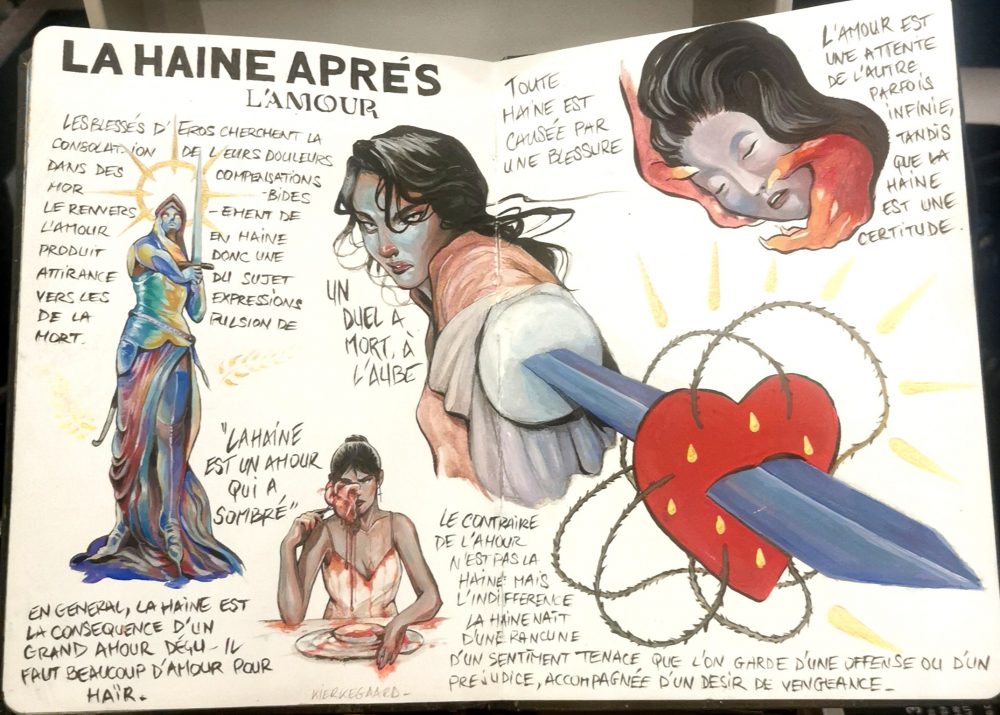 LA HAINE APRÉS
L'AMOUR
LES BLESSÉS D' EROS CHERCHENT LA
CONSOLAT-ION DE LEURS DOULEURS
DANS DES COMPENSATIONS
MOR -BIDES
LE RENVERS -EMENT DE
L'AMOUR EN HAINE
PRODUIT DONC UNE
ATTIRANCE DU SUJET
VERS LES EXPRESSIONS
DE LA PULSION DE
MORT.
UN
DUEL A
MORT, À
L'AUBE
"LA HAINE
EST UN AMOUR
QUI A
SOMBRÉ"
EN GENERAL, LA HAINE EST
LA CONSEQUENCE D'UN
GRAND AMOUR DÉÇU - IL
FAUT BEAUCOUP D'AMOUR POUR
HAÏR.
KIERKEGAARD-
TOUTE
HAINE EST
CAUSÉE PAR
UNE BLESSURE
L'AMOUR EST
UNE ATTENTE
DE L'AUTRE
PARFOIS
INFINIE,
TANDIS
QUE LA
HAINE
EST UNE
CERTITUDE.
LE CONTRAIRE
DE L'AMOUR
N'EST PAS LA
HAINE MAIS
L'INDIFFERENCE
LA HAINE NAÎT
D'UNE RANCUNE
D'UN SENTIMENT TENACE QUE L'ON GARDE D'UNE OFFENSE OU D'UN
PREJUDICE, ACCOMPAGNÉE D'UN DESIR DE VENGEANCE-